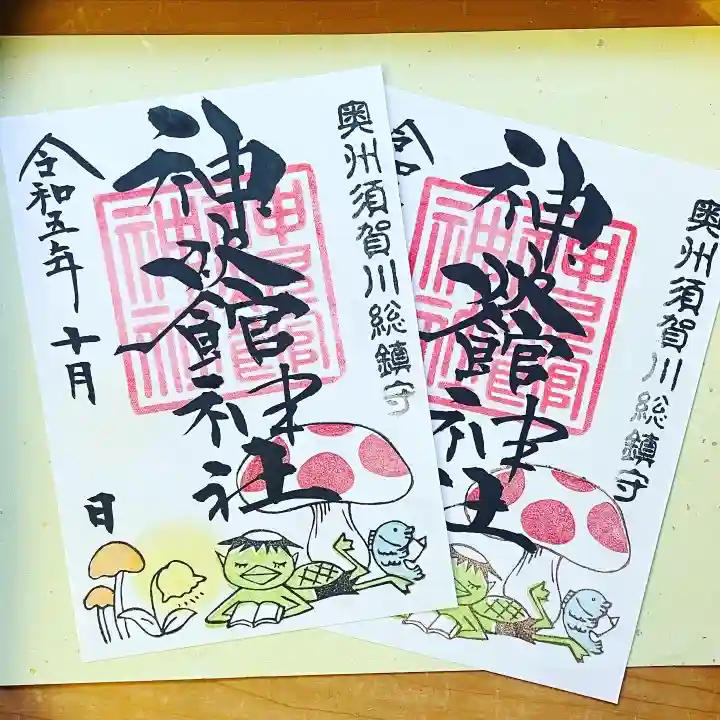 奥州須賀川総鎮守
神炊館神社
令和五年十月
日
奥州須賀川総鎮守
神炊館神社
令和